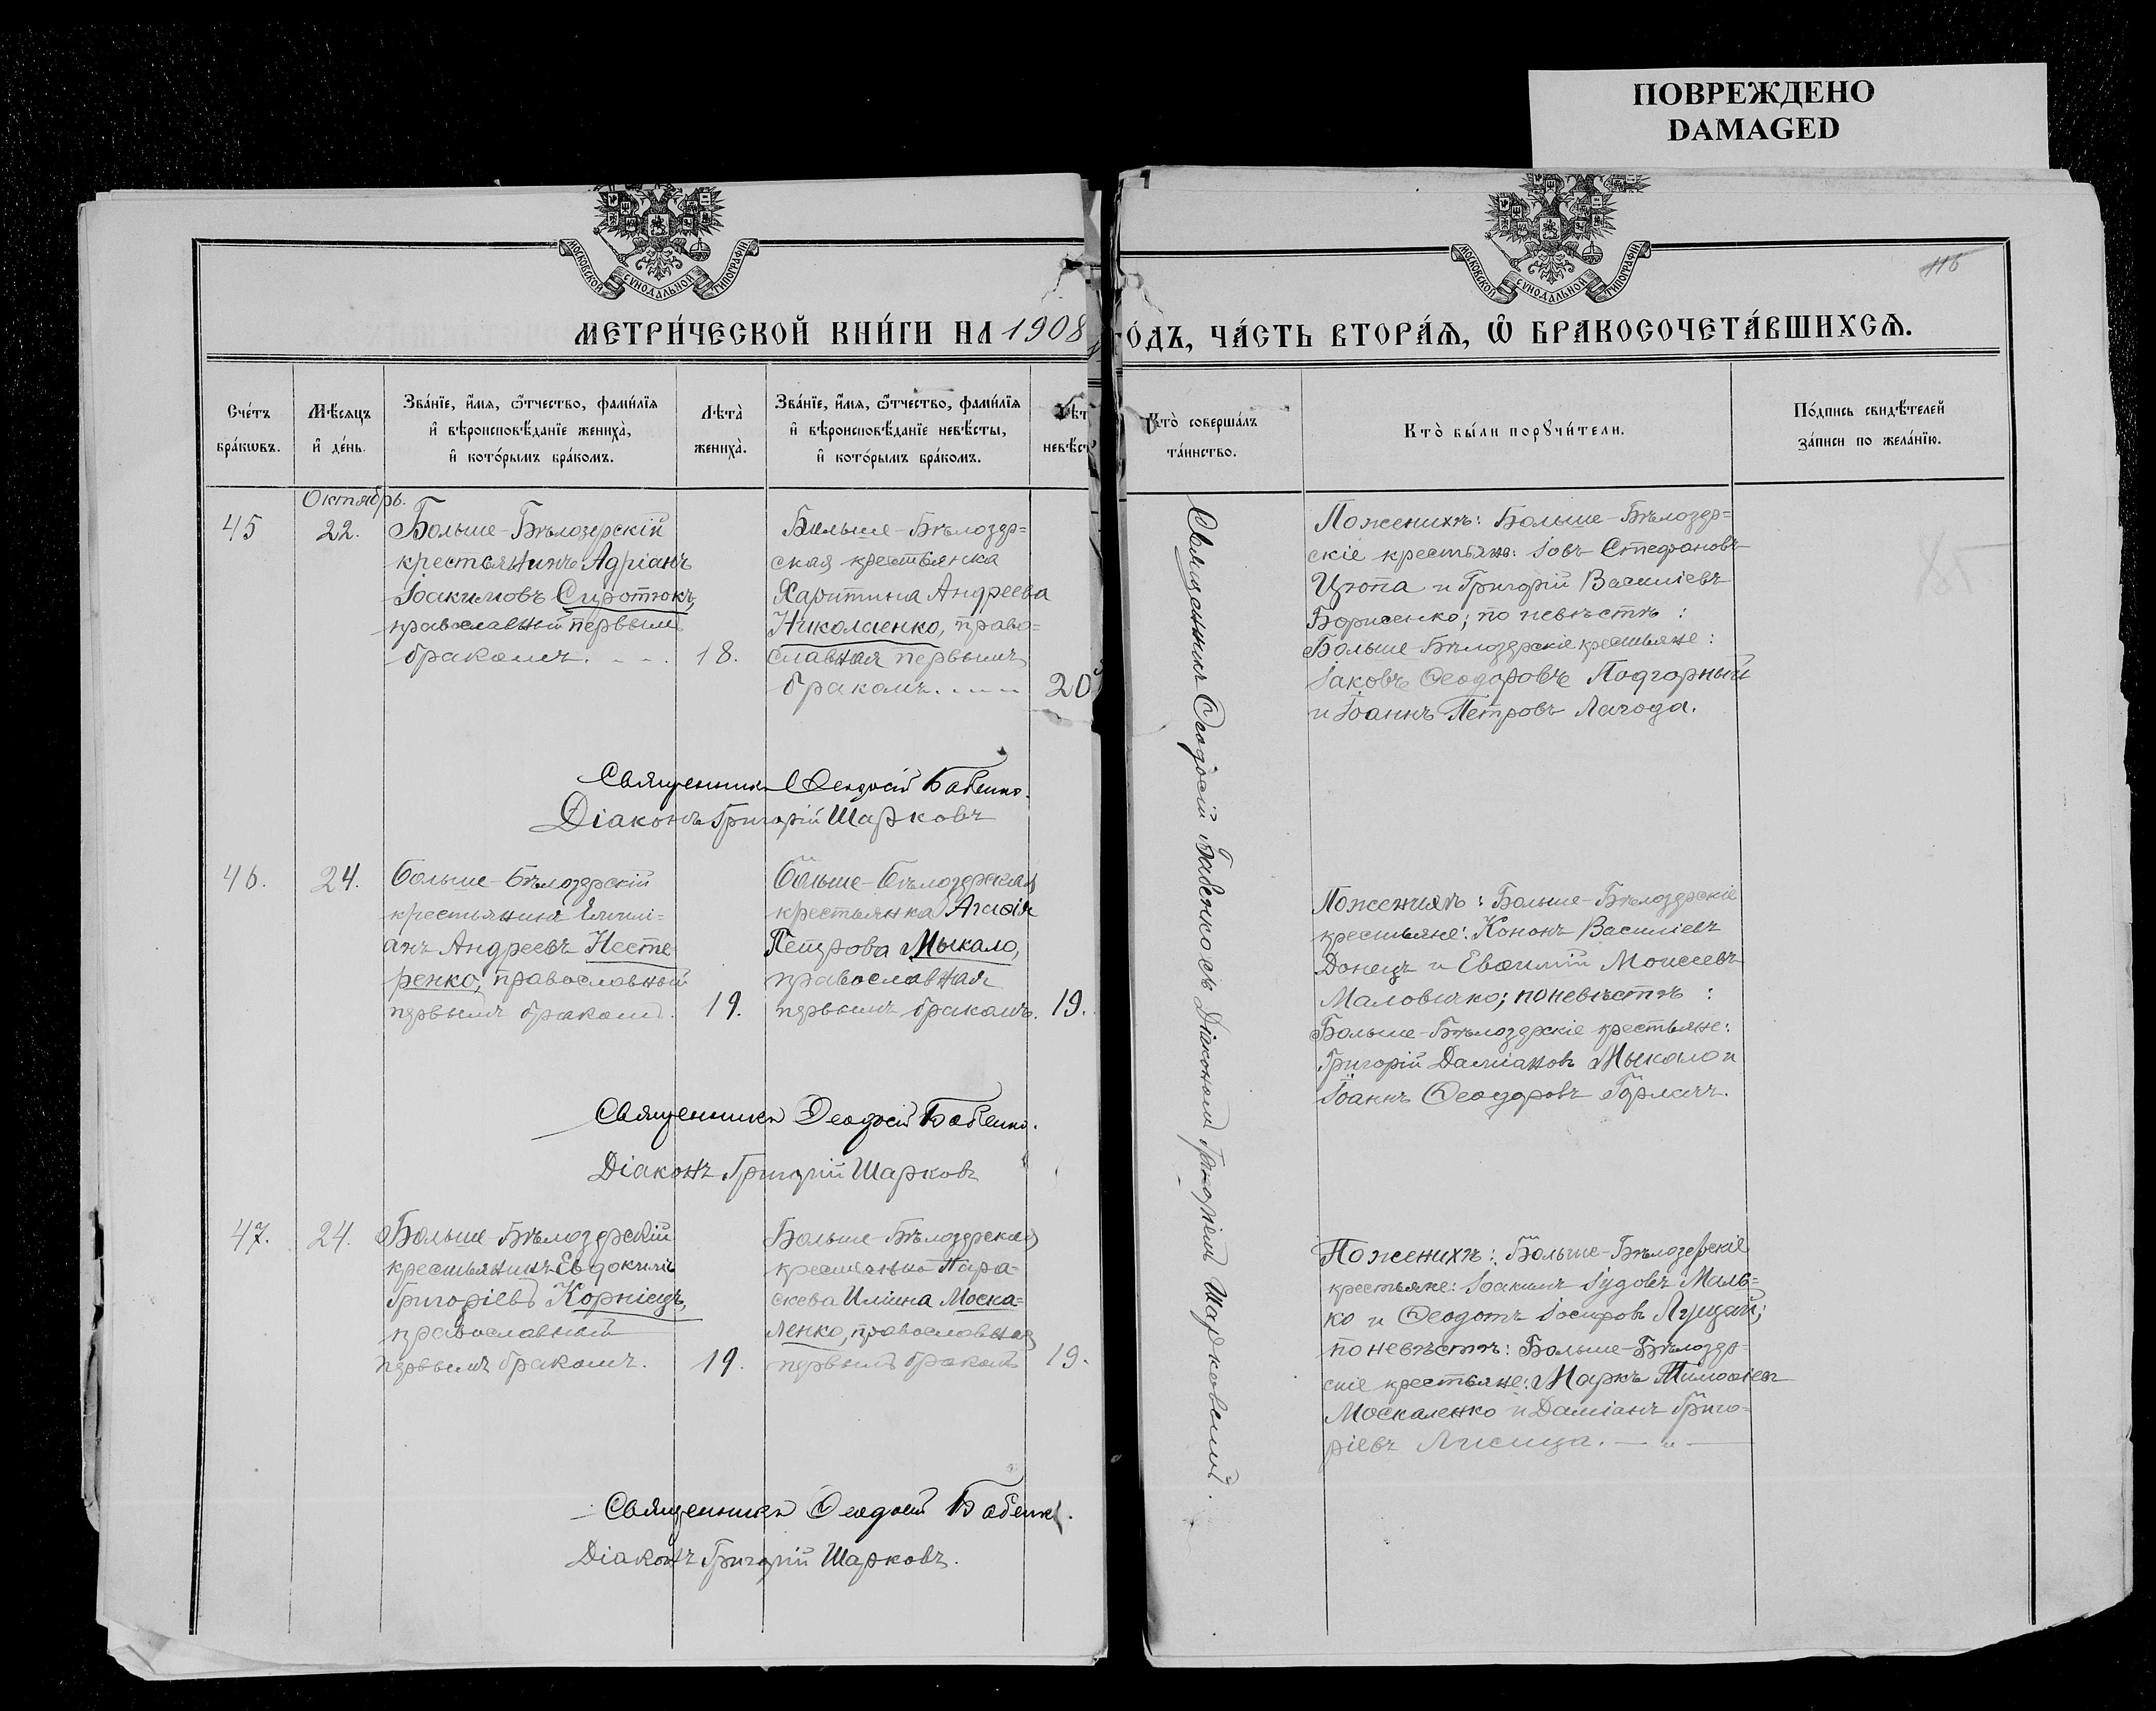 ПОВРЕЖДЕНО
DAMAGED
МОСКОВСКОЙ СѴНОДАЛЬНОЙ ТИПОГРАФІИ
МОСКОВСКОЙ СѴНОДАЛЬНОЙ ТИПОГРАФІИ
116
МЕТРИ́ЧЕСКОЙ КНИ́ГИ НА 1908 ГО́ДЪ, ЧА́СТЬ ВТОРА́Я, Ѿ БРАКОСОЧЕТА́ВШИХСЯ.
Сче́тъ
бра́кѡвъ.
Мѣ́сяцъ
и҆ де́нь.
Зва́нїе, и҆́мя, ѻ҆́тчество, фами́лїя
и҆ вѣроисповѣ́данїе жениха̀,
и҆ кото́рымъ бра́комъ.
Лѣта̀
жениха̀.
Зва́нїе, и҆́мя, ѻ҆́тчество, фами́лїя
и҆ вѣроисповѣ́данїе невѣ́сты,
и҆ кото́рымъ бра́комъ.
Лѣт
невѣ́ст
Кто̀ соверша́лъ
та́инство.
Кто̀ бы́ли порꙋчи́тели.
По́дпись свидѣ́телей
за́писи по жела́нїю.
Октябрь.
45
22.
Больше-Бѣлозерскій
крестьянинъ Адріанъ
Іоакимовъ Сиротюкъ,
православный первымъ
бракомъ.
18.
Больше-Бѣлозер=
ская крестьянка
Харитина Андреева
Николаенко, право=
славная первымъ
бракомъ.
20
Священникъ Ѳеодосій Бабенко съ Діакономъ Григоріемъ Шарковымъ.
По женихѣ: Больше-Бѣлозер=
скіе крестьяне: Іовъ Стефановъ
Цюпа и Григорій Василіевъ
Борисенко; по невѣстѣ:
Больше-Бѣлозерскіе крестьяне:
Іаковъ Ѳеодоровъ Подгорный
и Іоаннъ Петровъ Лагода.
Священникъ Ѳеодосій Бабенко.
Діаконъ Григорій Шарковъ
46.
24.
Больше-Бѣлозерскій
крестьянинъ Емили=
анъ Андреевъ Несте
ренко, православный
первымъ бракомъ.
19.
Больше-Бѣлозерская
крестьянка Агаѳія
Петрова Мыкало,
православная
первымъ бракомъ.
19.
По женихѣ: Больше-Бѣлозерскіе
крестьяне: Кононъ Василіевъ
Донецъ и Евѳимій Моисеевъ
Маловичко; по невѣстѣ:
Больше-Бѣлозерскіе крестьяне:
Григорій Даміановъ Мыкало и
Іоаннъ Ѳеодоровъ Горлачъ.
Священникъ Ѳеодосій Бабенко.
Діаконъ Григорій Шарковъ
47.
24.
Больше-Бѣлозерскій
крестьянинъ Евдокимъ
Григоріевъ Корніецъ,
православный
первымъ бракомъ.
19.
Больше-Бѣлозерская
крестьянка Пара-
скева Иліина Моска=
ленко, православная
первымъ бракомъ
19.
По женихѣ: Больше-Бѣлозерскіе
крестьяне: Іоакимъ Іудовъ Маль=
ко и Ѳеодотъ Іосифовъ Луцай;
по невѣстѣ: Больше-Бѣлозер=
скіе крестьяне: Маркъ Тимоѳіевъ
Москаленко и Даміанъ Григо=
ріевъ Лисица.
Священникъ Ѳеодосій Бабенко.
Діаконъ Григорій Шарковъ.